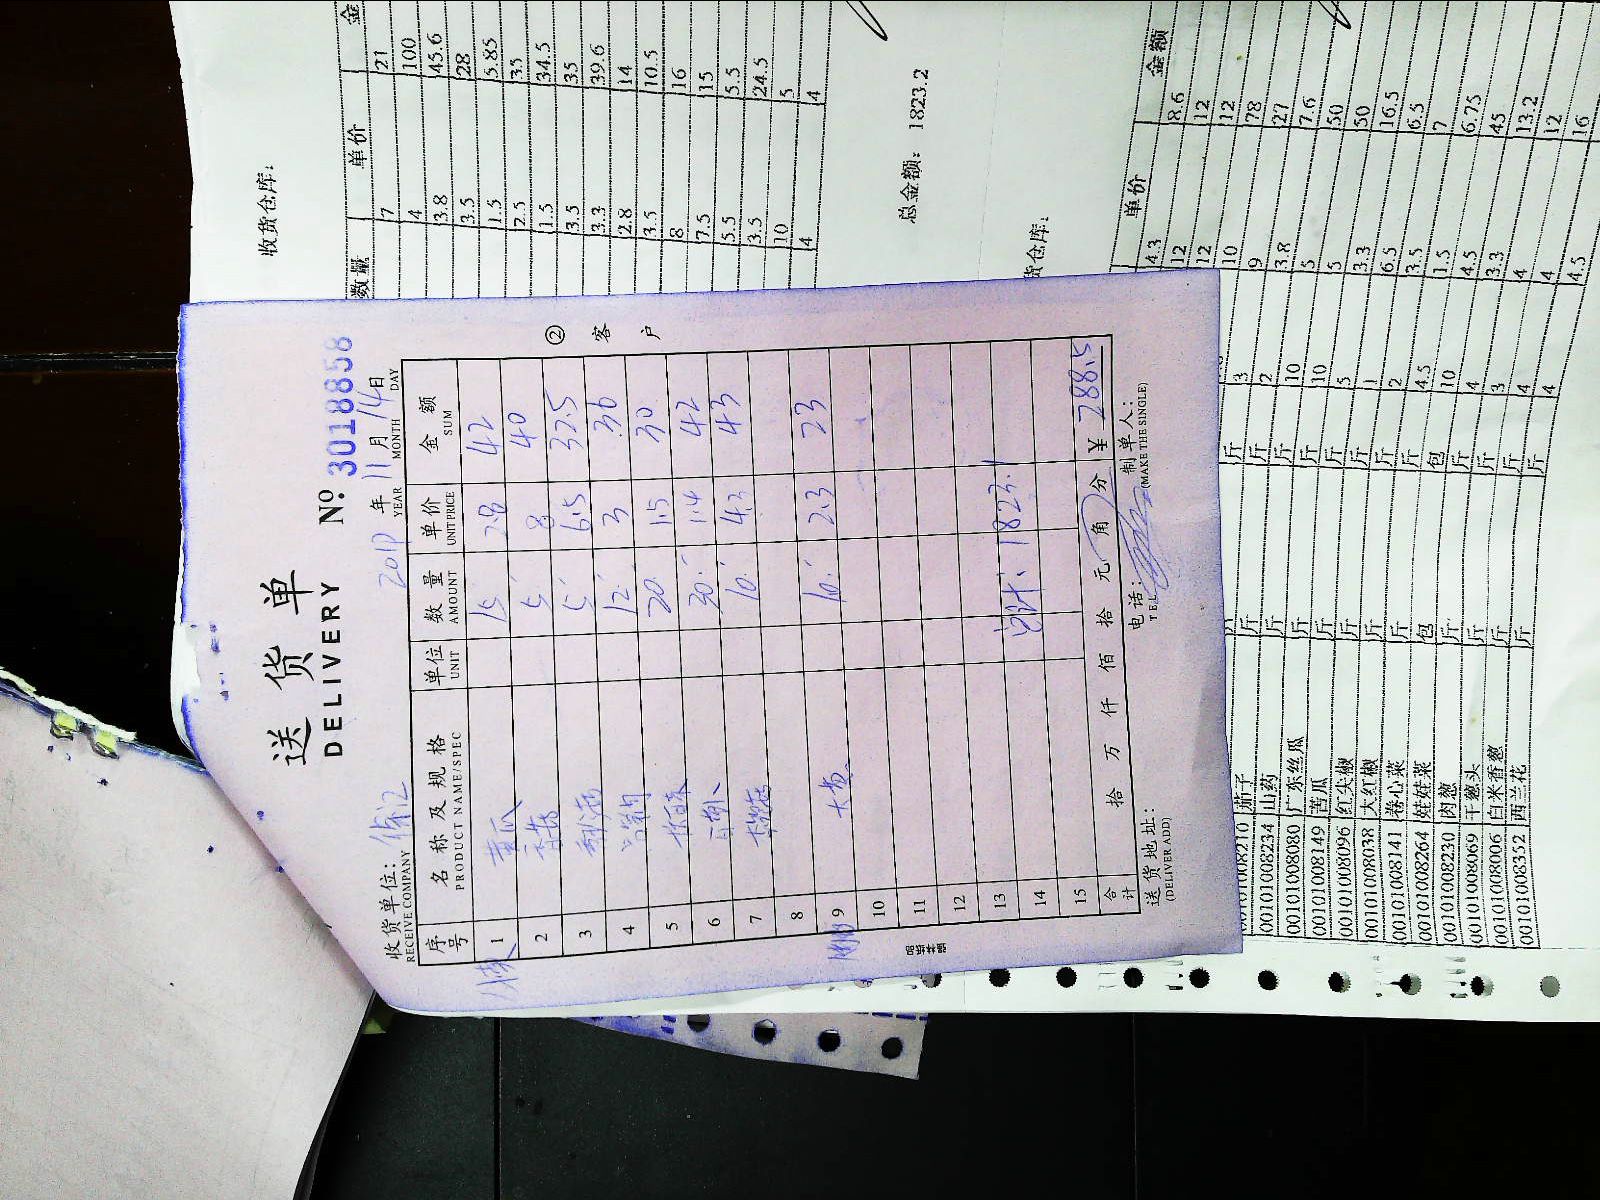 送货单
DELIVERY
№ 3018858
收货单位:
RECEIVE COMPANY
年 11 月 14 日
YEAR MONTH DAY
序号 名称及规格 单位 数量 单价 金额
PRODUCT NAME/SPEC UNIT AMOUNT UNIT PRICE SUM
1 黄瓜 15 2.8 42
2 5 8 40
3 5 6.5 32.5
4 12 3 36
5 20 1.5 30
6 30 1.4 42
7 10 4.3 43
8
9 大葱 10 2.3 23
10
11
12
13 总计: 1823.
14
15
合计 拾 万 仟 佰 拾 元 角 分 ¥ 288.5
送货地址: 电话: 制单人:
(DELIVER ADD) TEL (MAKE THE SINGLE)
② 客户
收货仓库:
数量 单价 金
7 21
4 100
3.8 45.6
3.5 28
1.5 5.85
2.5 35
1.5 34.5
3.5 35
3.3 39.6
2.8 14
3.5 10.5
8 16
7.5 15
5.5 5.5
3.5 24.5
10 5
4 4
总金额: 1823.2
货仓库:
单价 金额
4.3 8.6
12 12
12 12
10 78
9 27
3.8 7.6
5 50
5 50
3.3 16.5
6.5 6.5
3.5 7
1.5 6.75
4.5 45
3.3 13.2
4 12
4 16
4.5
00101008210 茄子 斤 斤 3
00101008234 山药 斤 斤 2
00101008080 广东丝瓜 斤 斤 10
00101008149 苦瓜 斤 斤 10
00101008096 红尖椒 斤 斤 5
00101008038 大红椒 斤 斤 1
00101008141 卷心菜 斤 斤 2
00101008264 娃娃菜 包 包 4.5
00101008230 肉葱 斤 斤 10
00101008069 干葱头 斤 斤 4
00101008006 白米香葱 斤 斤 3
00101008352 西兰花 斤 斤 4
4